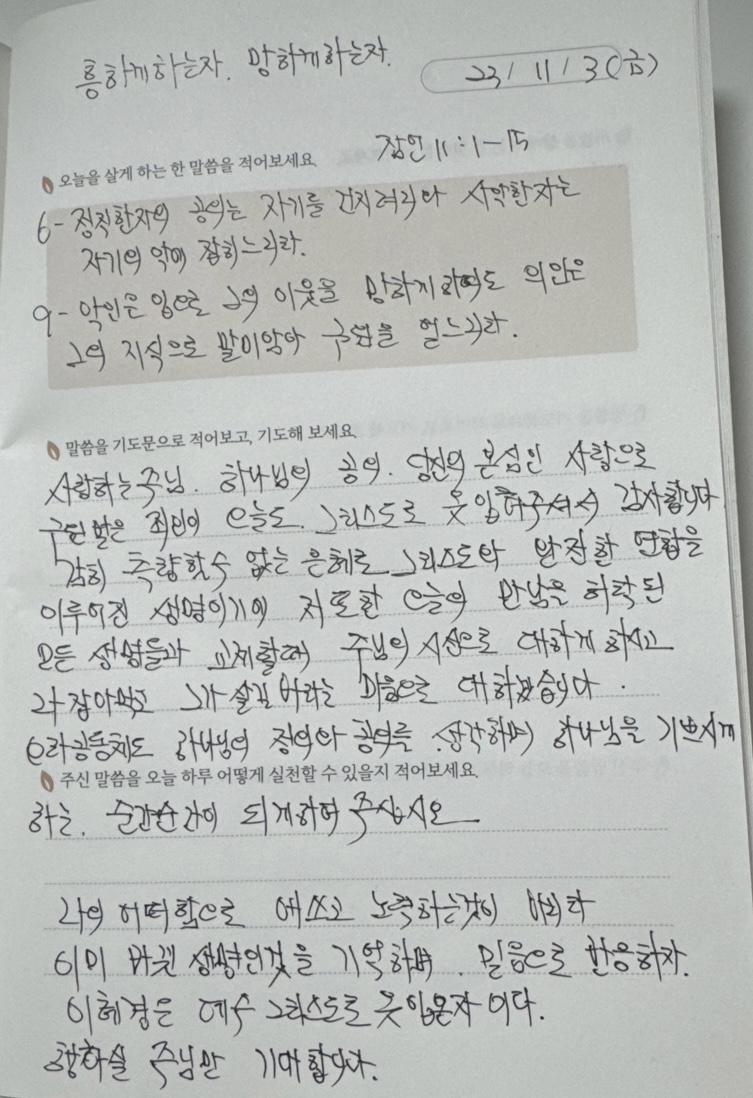 흥하게하는자. 망하게하는자.
23/ 11 / 3 (금)
잠언 11:1-15
오늘을 살게 하는 한 말씀을 적어보세요.
6- 정직한자의 공의는 자기를 건지려니와 사악한자는
자기의 악에 잡히느니라.
9- 악인은 입으로 그의 이웃을 망하게 하여도 의인은
그의 지식으로 말미암아 구원을 얻느니라.
말씀을 기도문으로 적어보고, 기도해 보세요.
사랑하는 주님. 하나님의 공의. 당신의 본심인 사랑으로
구원받은 죄인이 오늘도 그리스도로 옷입혀주셔서 감사합니다
감히 측량할수 없는 은혜로 그리스도와 완전한 연합을
이루어진 생명이기에 저또한 오늘의 만남을 허락된
모든 생명들과 교제할때 주님의 시선으로 대하게 하시고
나 잡아먹고 그가 살길 바라는 마음으로 대하겠습니다.
우리공동체도 하나님의 정의와 공의를 생각하며 하나님을 기쁘시게
주신 말씀을 오늘 하루 어떻게 실천할 수 있을지 적어보세요.
하는. 순간순간이 되게하여 주십시오
나의 어떠함으로 애쓰고 노력하는것이 아니라
이미 바뀐 생명인것을 기억하며. 믿음으로 반응하자.
이혜경은 예수 그리스도로 옷입은자 이다.
행하실 주님만 기대합니다.